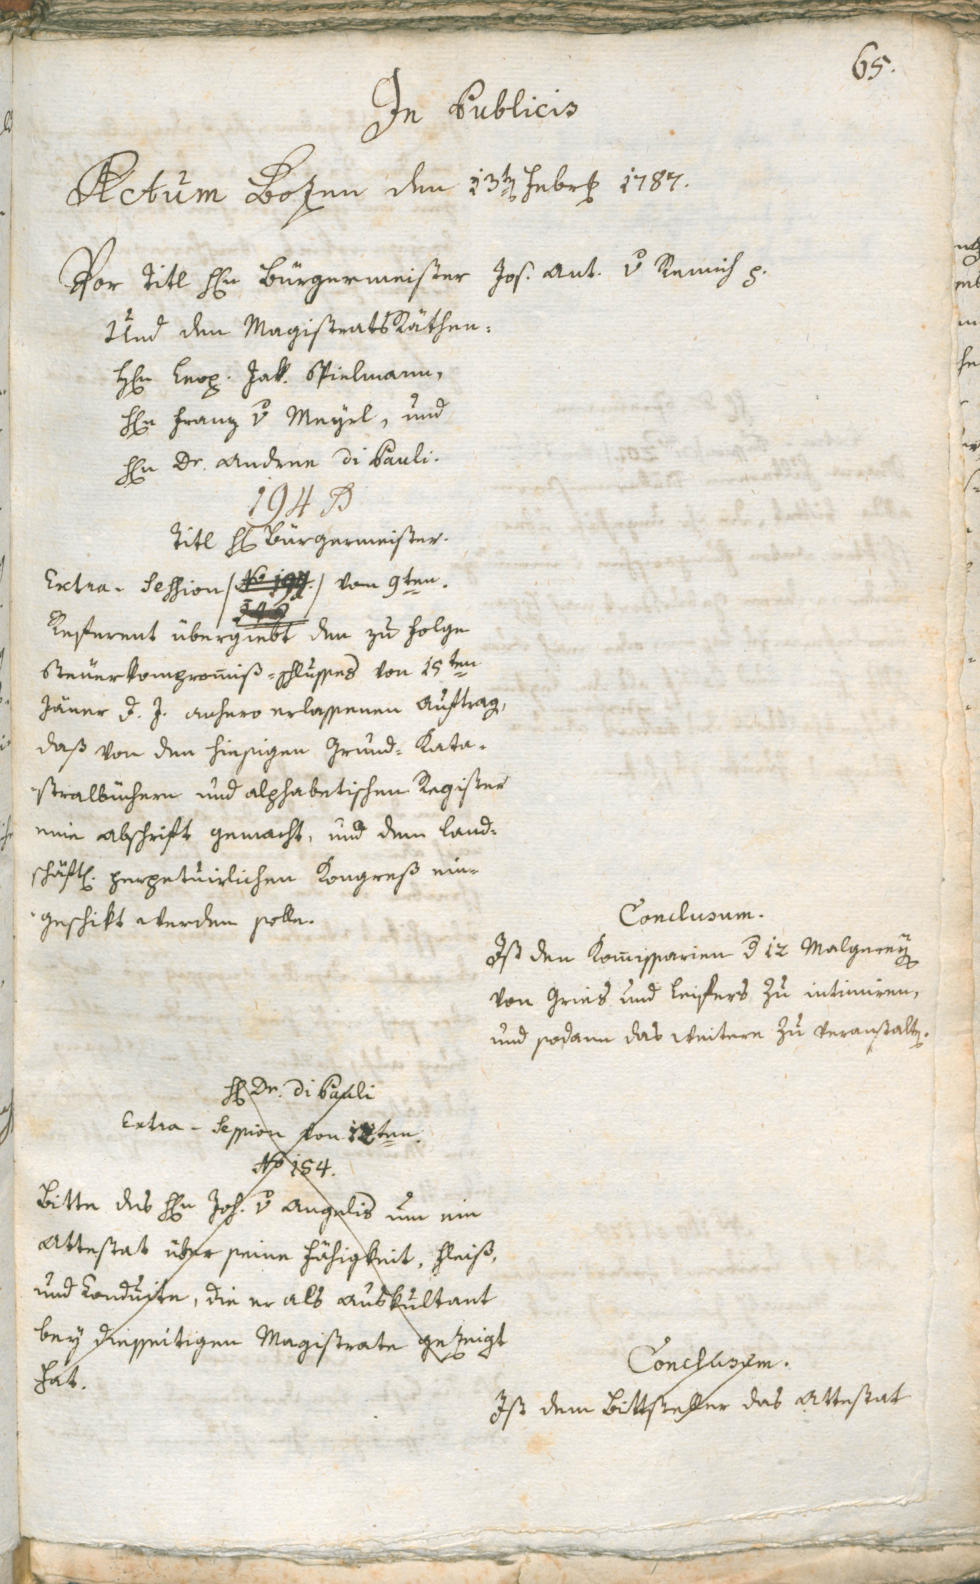 65.
In Publicis
Actum Bozen den 13t Febr 1787.
Vor Titl Hn Bürgermeister Jos. Ant. v Remich p.
Und den Magistrats Räthen:
Hn Leop. Jak. Spielmann,
Hn Franz v Mayrl, und
Hn Dr. Andree Di Pauli.
194 B
Titl H Bürgermeister.
Extra-Session (No 194.) vom 9ten.
Referent übergiebt den zu Folge
Steuerkompromiß-schlusses von 15ten
Jäner d. J. anhero erlassenen Auftrag,
daß von den hiesigen Grund-Kata-
stralbüchern und alphabetischen Register
eine Abschrift gemacht, und dem Land-
schäftl. perpetuirlichen Kongreß ein-
geschikt werden solle.
Conclusum.
Ist den Kommissarien d 12 Malgreyen
von Gries und Leifers zu intimiren,
und sodann das weitere zu veranstalt.
H Dr. Di Pauli
Extra-Session von 12ten.
No 154.
Bitte des Hn Joh. v Angelis um ein
Attestat über seine Fähigkeit, Fleiß,
und Conduite, die er als Auskultant
bey diesseitigen Magistrate gezeigt
hat.
Conclusum.
Ist dem Bittsteller das Attestat